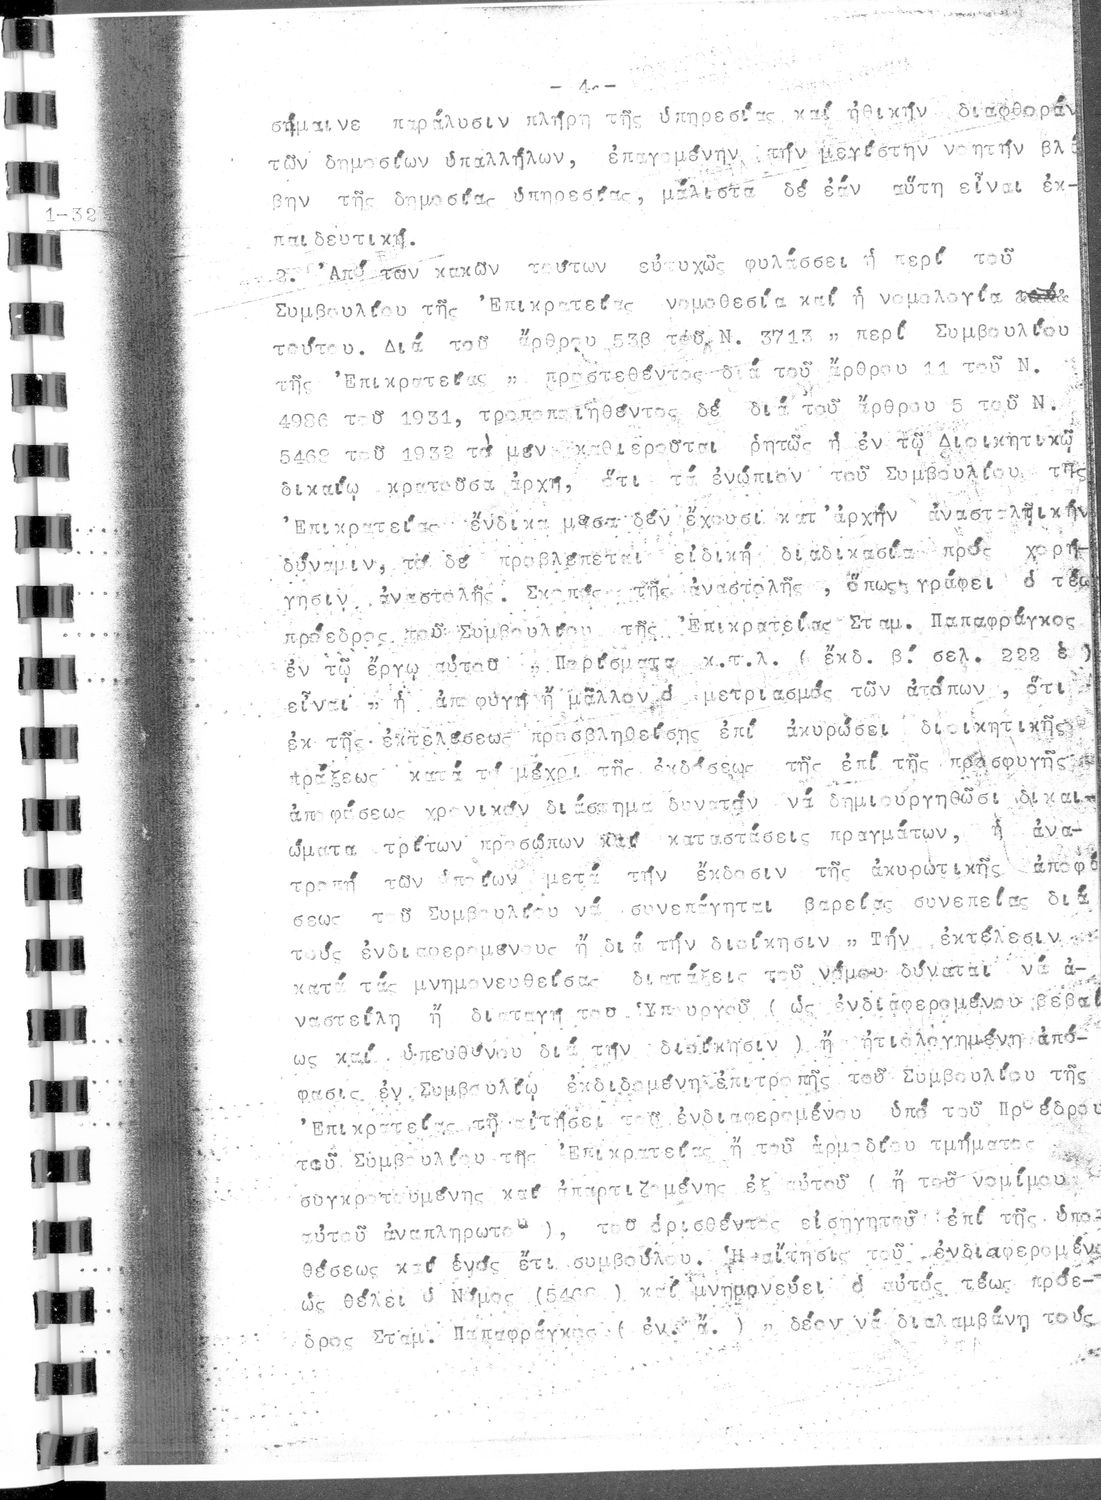 - 4 -
σήμαινε παράλυσιν πλήρη τῆς ὑπηρεσίας καί ἠθικήν διαφθοράν
τῶν δημοσίων ὑπαλλήλων, ἐπαγομένην τήν μεγίστην νοητήν βλά
βην τῆς δημοσίας ὑπηρεσίας, μάλιστα δέ ἐάν αὕτη εἶναι ἐκ-
1-32
παιδευτική.
2. Ἀπό τῶν κακῶν τούτων εὐτυχῶς φυλάσσει ἡ περί τοῦ
Συμβουλίου τῆς Ἐπικρατείας νομοθεσία καί ἡ νομολογία
τούτου. Διά τοῦ ἄρθρου 53β τοῦ Ν. 3713 " περί Συμβουλίου
τῆς Ἐπικρατείας " προστεθέντος διά τοῦ ἄρθρου 11 τοῦ Ν.
4986 τοῦ 1931, τροποποιηθέντος δέ διά τοῦ ἄρθρου 5 τοῦ Ν.
5462 τοῦ 1932 τό μέν καθιεροῦται ρητῶς ἡ ἐν τῷ Διοικητικῷ
δικαίῳ κρατοῦσα ἀρχή, ὅτι τά ἐνώπιον τοῦ Συμβουλίου τῆς
Ἐπικρατείας ἔνδικα μέσα δέν ἔχουσι κατ'ἀρχήν ἀνασταλτικήν
δύναμιν, τό δέ προβλέπεται εἰδική διαδικασία πρός χορή-
γησιν ἀναστολῆς. Σκοπός τῆς ἀναστολῆς , ὅπως γράφει ὁ τέως
πρόεδρος τοῦ Συμβουλίου τῆς Ἐπικρατείας Σταμ. Παπαφράγκος
ἐν τῷ ἔργῳ αὐτοῦ " Πορίσματα κ.τ.λ. ( ἔκδ. β. σελ. 222 ἑ )
εἶναι " ἡ ἀποφυγή ἤ μᾶλλον ὁ μετριασμός τῶν ἀτόπων , ὅτι
ἐκ τῆς ἐκτελέσεως προσβληθείσης ἐπί ἀκυρώσει διοικητικῆς
πράξεως κατά τό μέχρι τῆς ἐκδόσεως τῆς ἐπί τῆς προσφυγῆς
ἀποφάσεως χρονικόν διάστημα δυνατόν νά δημιουργηθῶσι δικαι-
ώματα τρίτων προσώπων καί καταστάσεις πραγμάτων, ἡ ἀνα-
τροπή τῶν ὁποίων μετά τήν ἔκδοσιν τῆς ἀκυρωτικῆς ἀποφά
σεως τοῦ Συμβουλίου νά συνεπάγηται βαρείας συνεπείας διά
τούς ἐνδιαφερομένους ἤ διά τήν διοίκησιν " Τήν ἐκτέλεσιν
κατά τάς μνημονευθείσας διατάξεις τοῦ νόμου δύναται νά ἀ-
ναστείλη ἤ διαταγή τοῦ Ὑπουργοῦ ( ὡς ἐνδιαφερομένου βεβαί
ως καί ὑπευθύνου διά τήν διοίκησιν ) ἤ ἠτιολογημένη ἀπό-
φασις ἐν Συμβουλίῳ ἐκδιδομένη ἐπιτροπῆς τοῦ Συμβουλίου τῆς
Ἐπικρατείας τῇ αἰτήσει τοῦ ἐνδιαφερομένου ὑπό τοῦ Προέδρου
τοῦ Συμβουλίου τῆς Ἐπικρατείας ἤ τοῦ ἁρμοδίου τμήματος
συγκροτουμένης καί ἀπαρτιζομένης ἐξ αὐτοῦ ( ἤ τοῦ νομίμου
αὐτοῦ ἀναπληρωτοῦ ), τοῦ ὁρισθέντος εἰσηγητοῦ ἐπί τῆς ὑπο-
θέσεως καί ἑνός ἔτι συμβούλου. Ἡ αἴτησις τοῦ ἐνδιαφερομένου
ὡς θέλει ὁ Νόμος (546 ) καί μνημονεύει ὁ αὐτός τέως πρόε-
δρος Σταμ. Παπαφράγκος ( ἐν. ἄ. ) " δέον νά διαλαμβάνη τούς